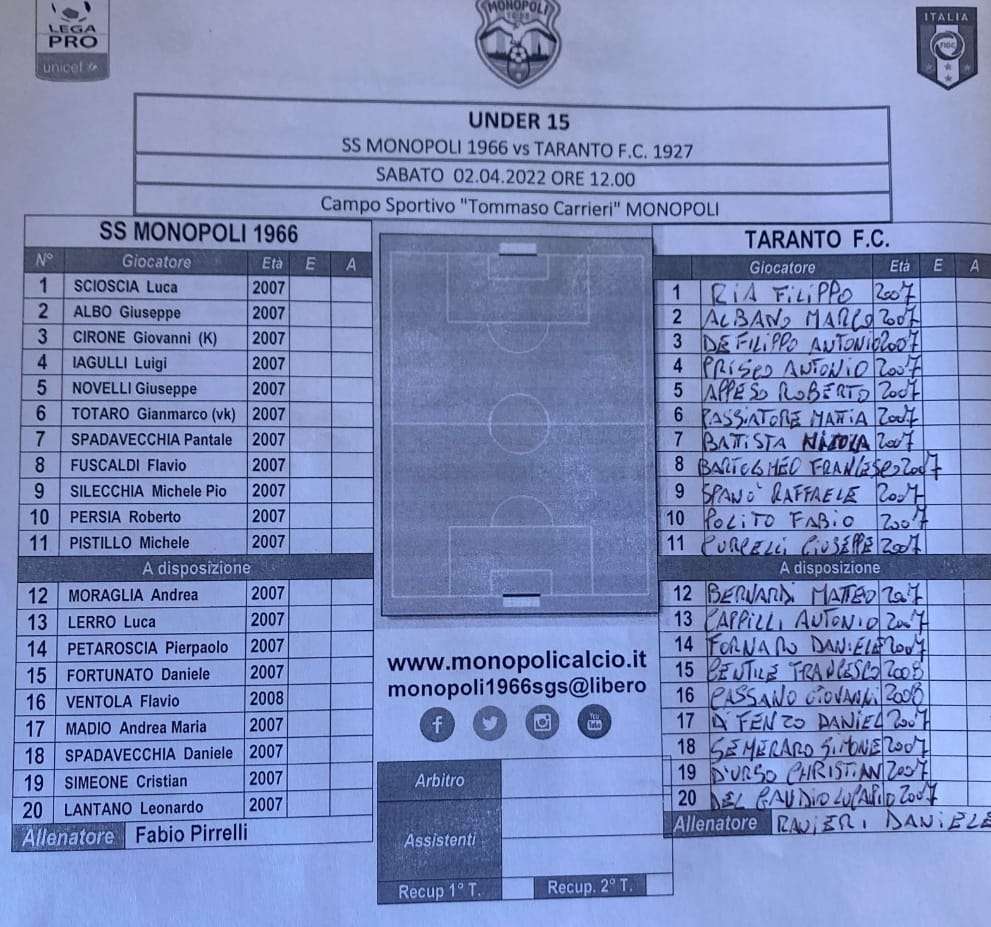 LEGA
PRO
unicef
MONOPOLI
1966
ITALIA
FIGC
UNDER 15
SS MONOPOLI 1966 vs TARANTO F.C. 1927
SABATO 02.04.2022 ORE 12.00
Campo Sportivo "Tommaso Carrieri" MONOPOLI
SS MONOPOLI 1966
N° Giocatore Età E A
1 SCIOSCIA Luca 2007
2 ALBO Giuseppe 2007
3 CIRONE Giovanni (K) 2007
4 IAGULLI Luigi 2007
5 NOVELLI Giuseppe 2007
6 TOTARO Gianmarco (vk) 2007
7 SPADAVECCHIA Pantale 2007
8 FUSCALDI Flavio 2007
9 SILECCHIA Michele Pio 2007
10 PERSIA Roberto 2007
11 PISTILLO Michele 2007
A disposizione
12 MORAGLIA Andrea 2007
13 LERRO Luca 2007
14 PETAROSCIA Pierpaolo 2007
15 FORTUNATO Daniele 2007
16 VENTOLA Flavio 2008
17 MADIO Andrea Maria 2007
18 SPADAVECCHIA Daniele 2007
19 SIMEONE Cristian 2007
20 LANTANO Leonardo 2007
Allenatore Fabio Pirrelli
www.monopolicalcio.it
monopoli1966sgs@libero
You
Tube
Arbitro
Assistenti
Recup 1° T. Recup. 2° T.
TARANTO F.C.
Giocatore Età E A
1 RIA FILIPPO 2007
2 ALBANO MARCO 2007
3 DE FILIPPO ANTONIO 2007
4 PRISCO ANTONIO 2007
5 APPESO ROBERTO 2007
6 PASSIATORE MATTIA 2007
7 BATTISTA NICOLA 2007
8 BARTOLOMEO FRANCESCO 2007
9 SPANO' RAFFAELE 2007
10 POLITO FABIO 2007
11 GIUSEPPE 2007
A disposizione
12 BERNARDI MATTEO 2007
13 CAPPILLI ANTONIO 2007
14 FORNARO DANIELE 2007
15 GENTILE FRANCESCO 2008
16 CASSANO GIOVANNI 2008
17 DI FENZO DANIEL 2007
18 SEMERARO SIMONE 2007
19 D'URSO CHRISTIAN 2007
20 DEL GAUDIO 2007
Allenatore RANIERI DANIELE